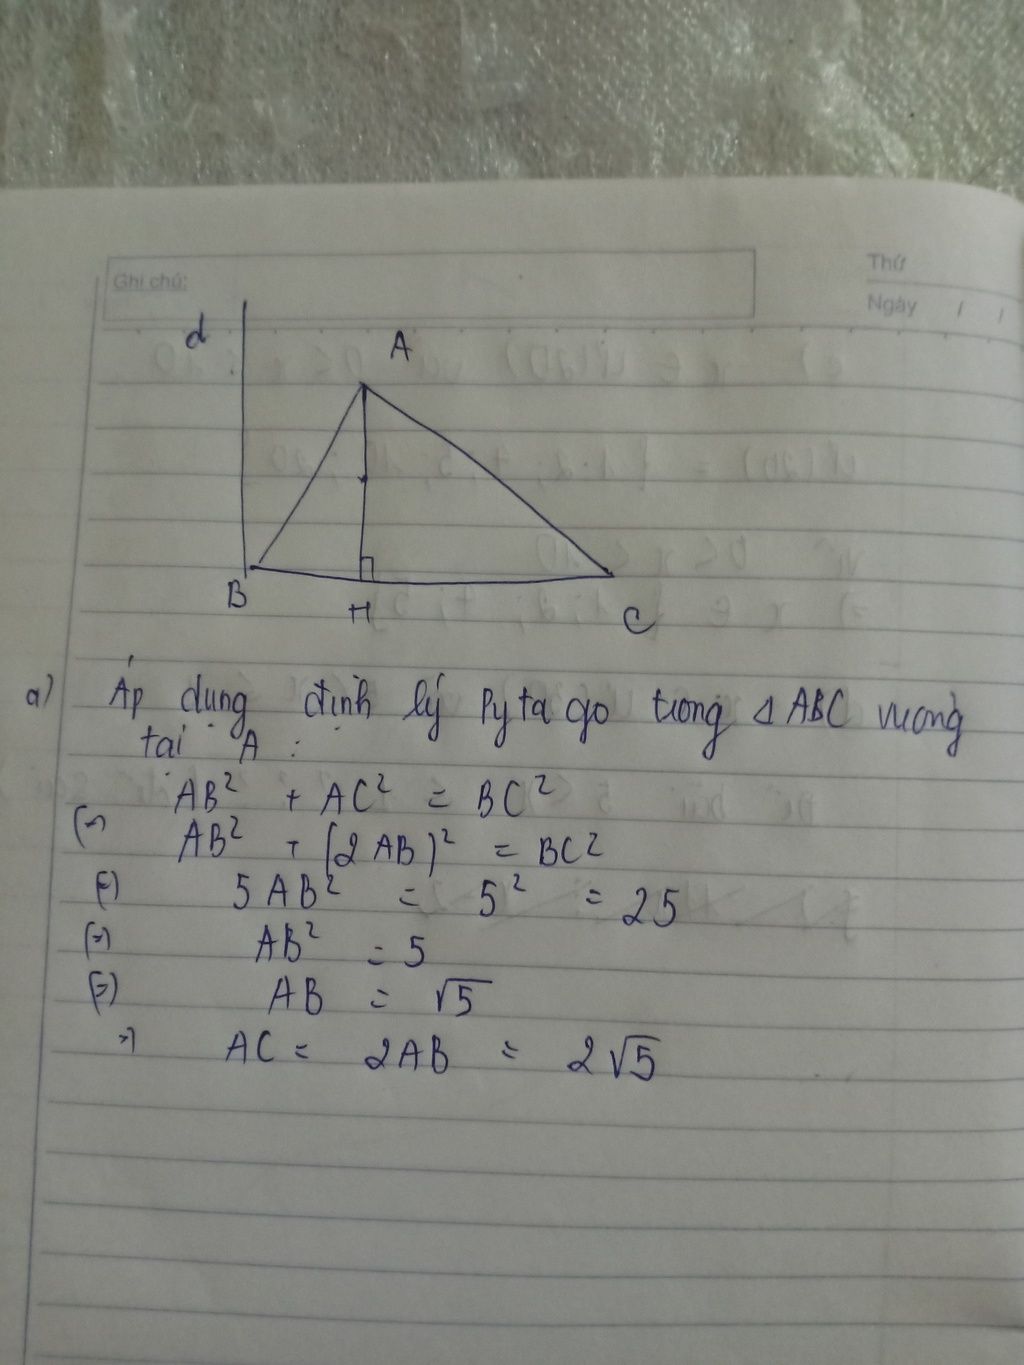 Ghi chú:
Thứ
Ngày / /
d
A
B
H
C
a) Áp dụng định lý Pytago trong Δ ABC vuông
tại A :
AB² + AC² = BC²
(=) AB² + (2AB)² = BC²
(=) 5AB² = 5² = 25
(=) AB² = 5
(=) AB = √5
=) AC = 2AB = 2√5